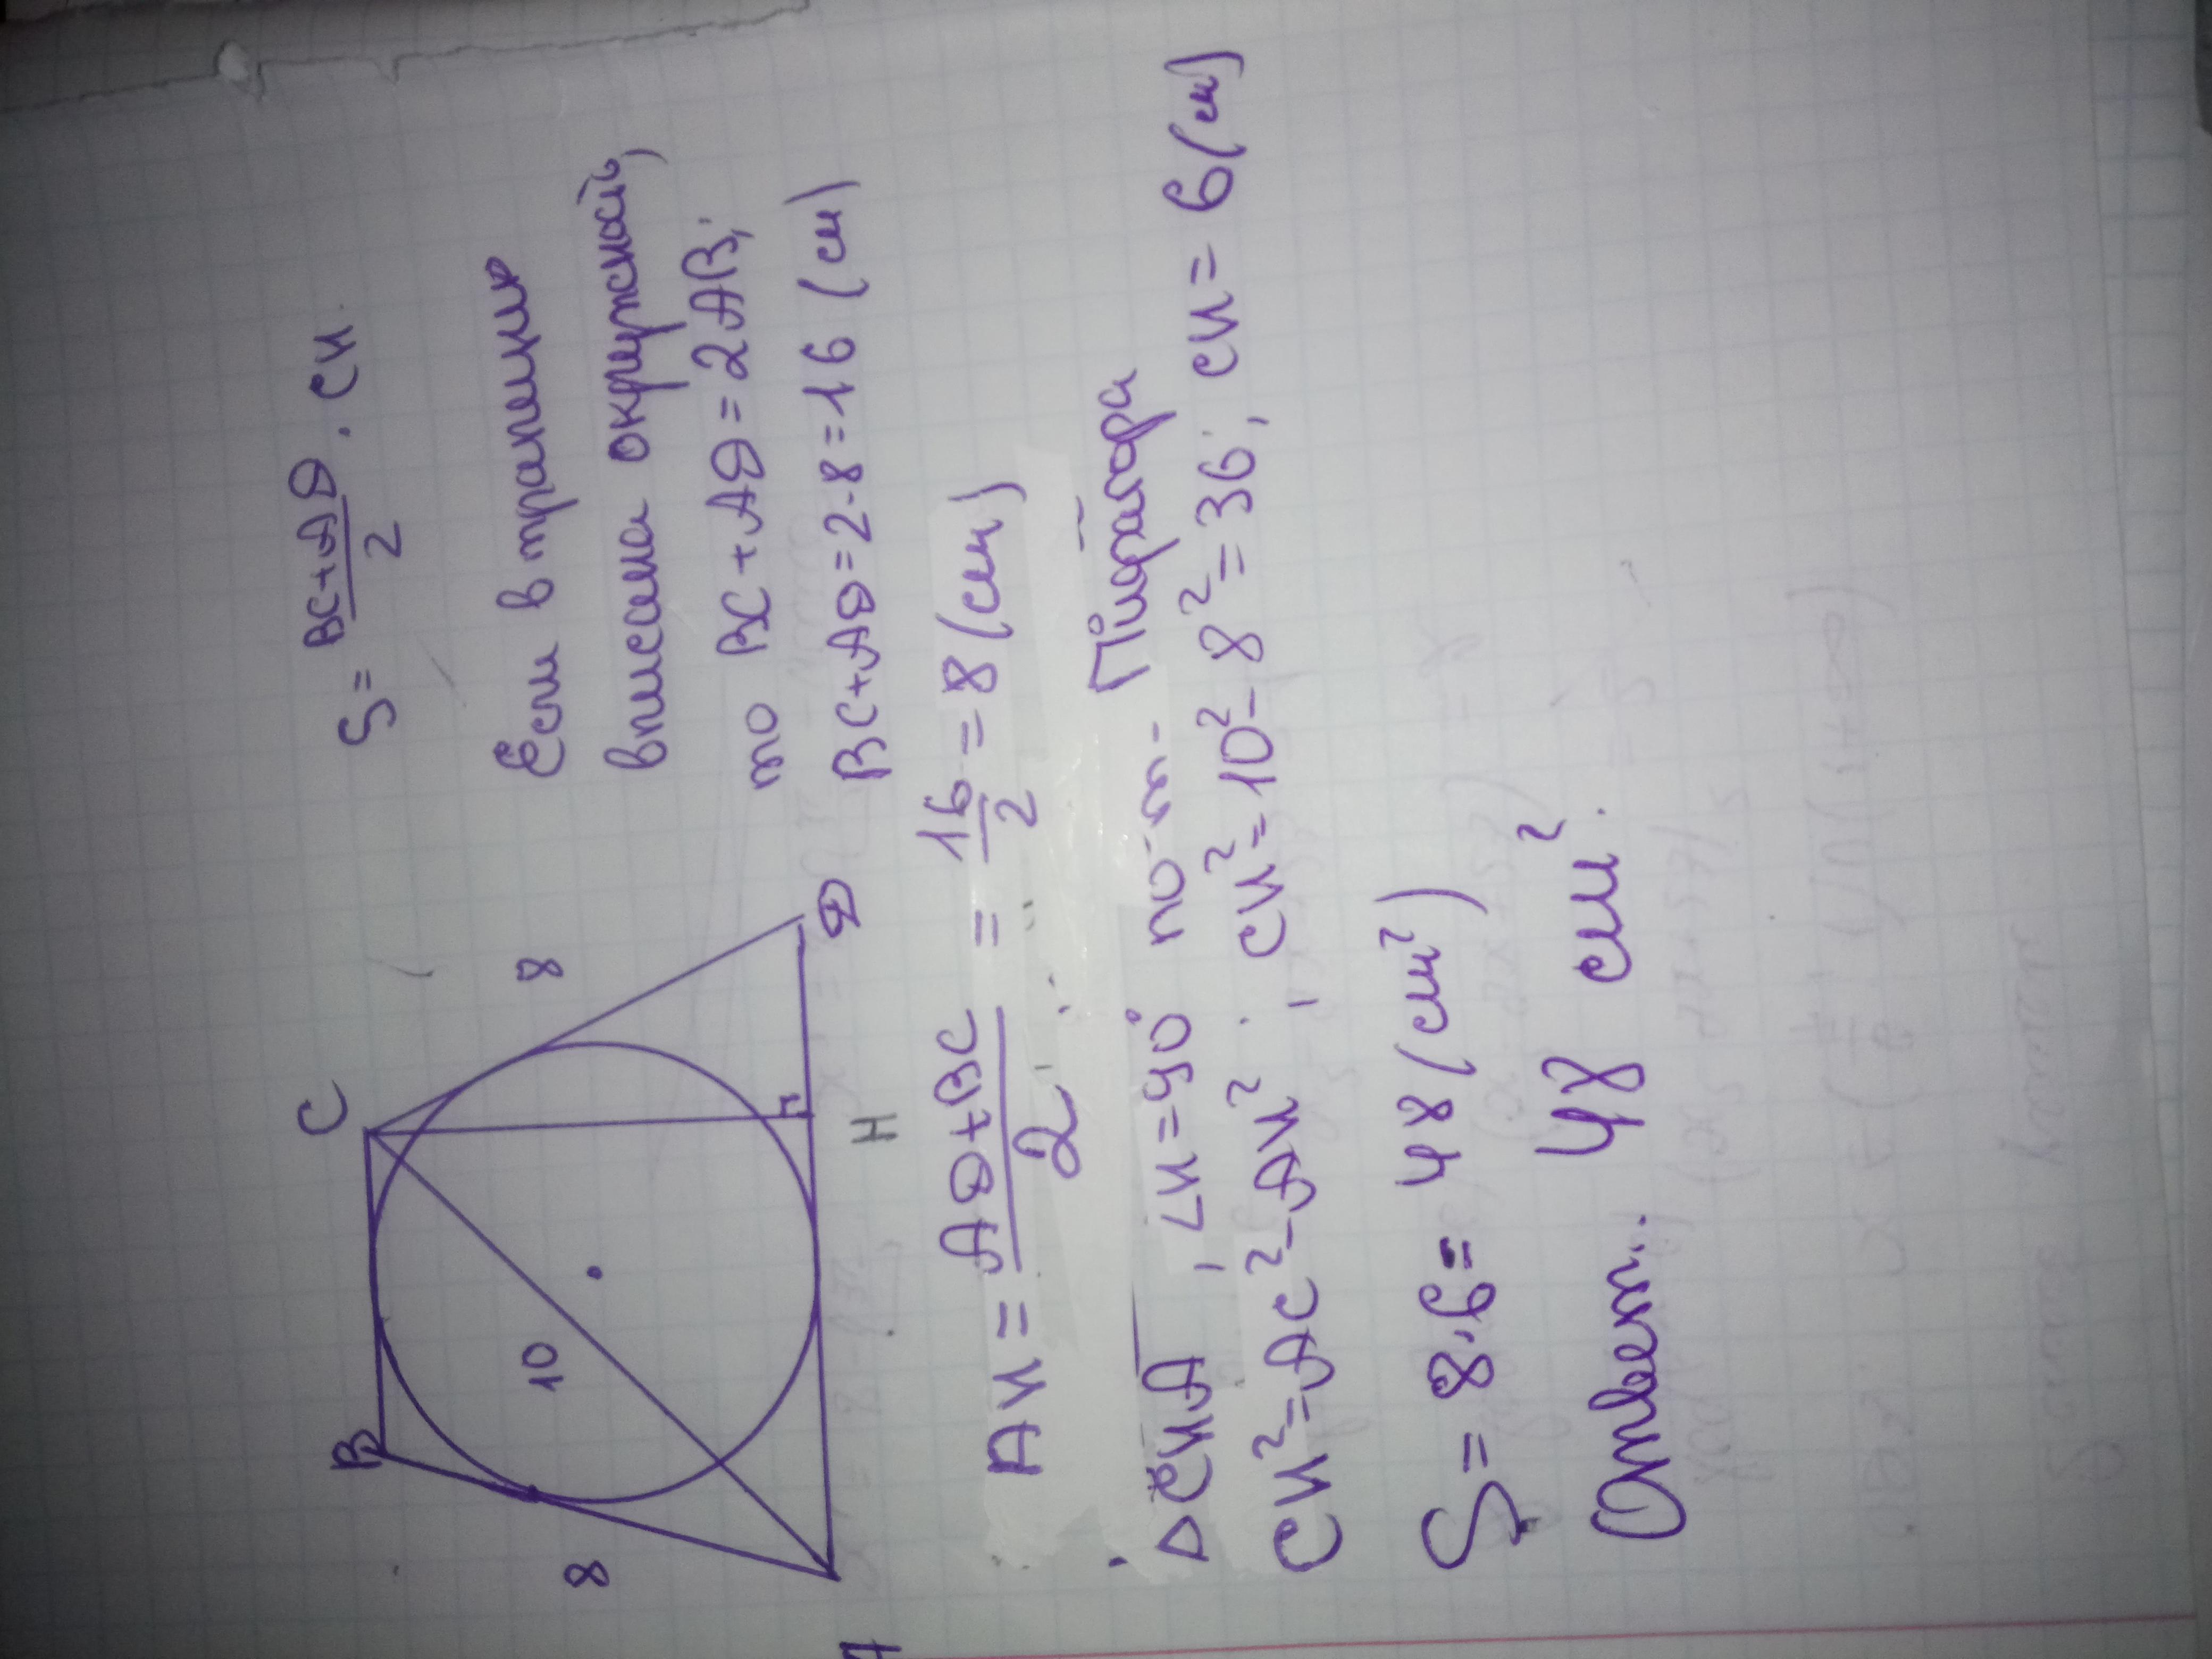 B
C
8
8
10
A
H
D
S = BC+AD/2 · CH.
Если в трапецию
вписана окружность,
то BC + AD = 2AB;
BC+AD = 2·8 = 16 (см)
AH = AD+BC/2 = 16/2 = 8 (см)
ΔCHA, ∠H=90° по т. Пифагора
CH² = AC² - AH²; CH² = 10² - 8² = 36; CH = 6 (см)
S = 8·6 = 48 (см²)
Ответ: 48 см².